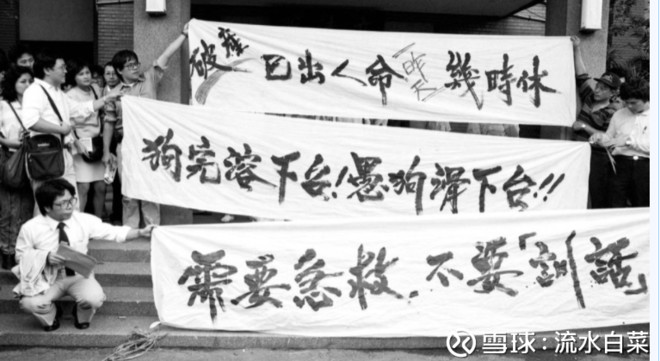 破產已出人命昨天幾時休
狗完溶下台！愚狗滑下台！！
需要急救．不要「訓話」
雪球：流水白菜